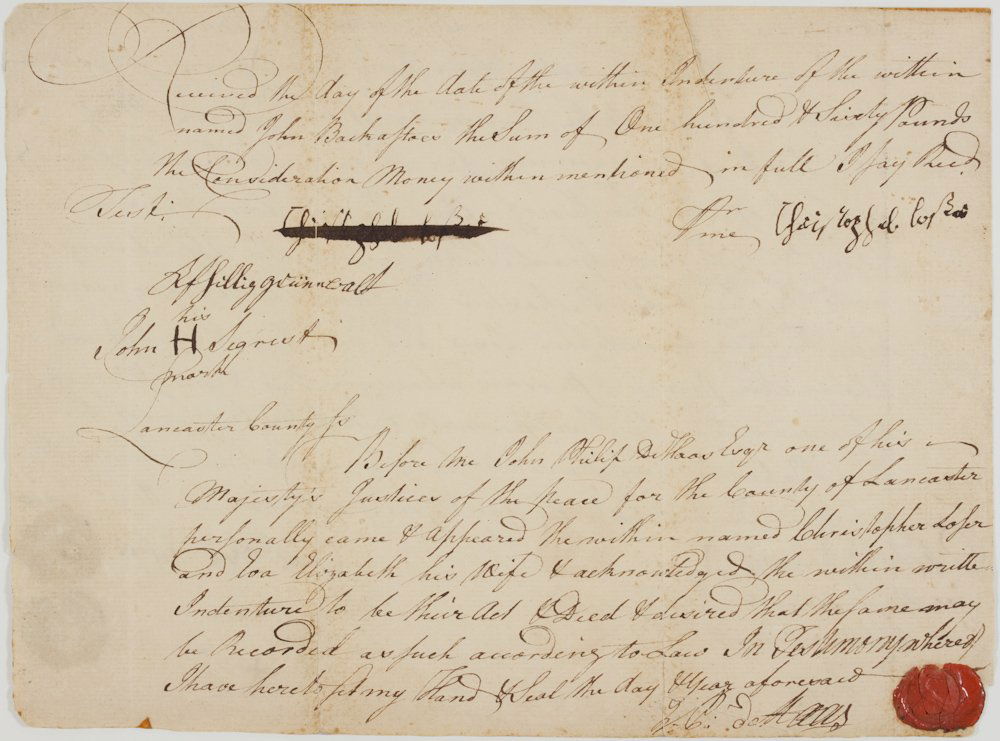 Received the day of the date of the within Indenture of the within
named John Backastoes the Sum of One hundred & Sixty Pounds
the Consideration Money within mentioned in full I say Recd.
Test:
Pr me
his
John H Segrist
mark
Lancaster County Ss
Before me John Philip DeHaas Esqr one of his
Majesty's Justices of the peace for the County of Lancaster
personally came & Appeared the within named Christopher Loser
and Eva Elizabeth his Wife & acknowledged the within writte
Indenture to be their Act & Deed & desired that the same may
be Recorded as such according to Law In Testimony whereof
I have hereto set my Hand & Seal the day & Year aforesaid
DeHaas